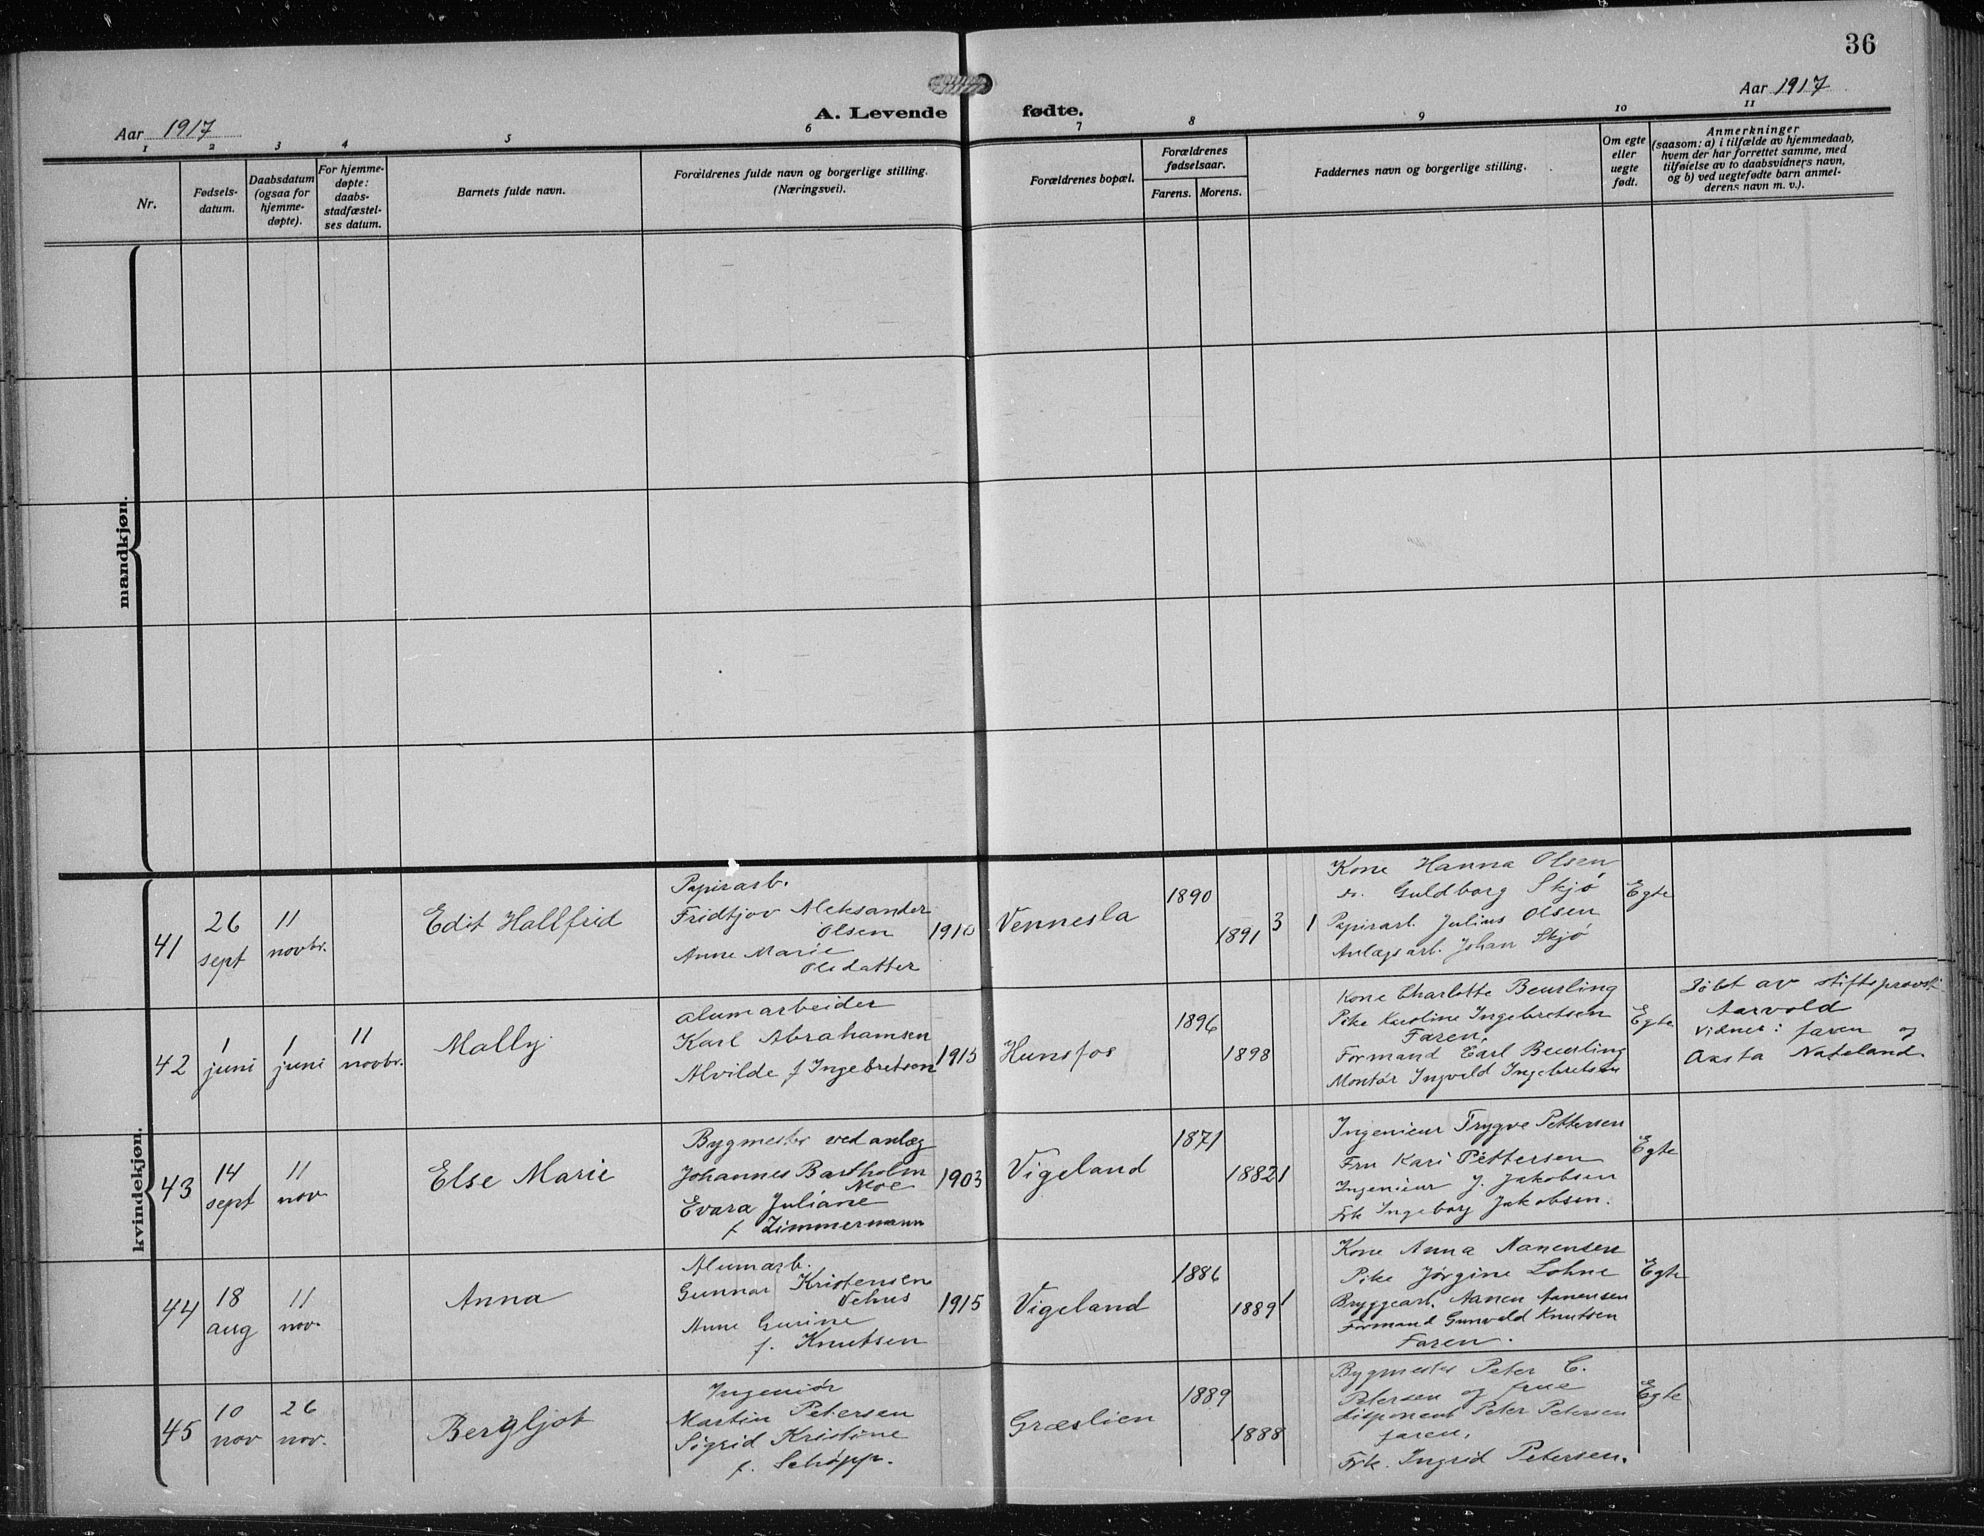 36
Aar 1917
Aar 1917
A. Levende fødte.
1 2 3 4 5 6 7 8 9 10 11
Nr.
Fødsels-
datum.
Daabsdatum
(ogsaa for
hjemme-
døpte).
For hjemme-
døpte:
daabs-
stadfæstel-
ses datum.
Barnets fulde navn.
Forældrenes fulde navn og borgerlige stilling.
(Næringsvei).
Forældrenes bopæl.
Forældrenes
fødselsaar.
Farens. Morens.
Faddernes navn og borgerlige stilling.
Om egte
eller
uegte
født.
Anmerkninger
(saasom: a) i tilfælde av hjemmedaab,
hvem der har forrettet samme, med
tilføielse av to daabsvidners navn,
og b) ved uegtefødte barn anmel-
derens navn m. v.).
mandkjøn.
kvindekjøn.
41
26
sept
11
novbr.
Edit Hallfrid
Papirarb.
Fridtjov Aleksander
Olsen
Anne Marie
Olsdatter
1910
Vennesla
1890
1891
3 1
Kone Hanna Olsen
do. Guldborg Skjø
Papirarb. Julius Olsen
Anlægsarb. Johan Skjø
Egte
42
1
juni
1
juni
11
novbr.
Mally
alumarbeider
Karl Abrahamsen
Alvilde f Ingebretsen
1915
Hunsfos
1896
1898
Kone Charlotte Beurling
Pike Karoline Ingebretsen
Faren,
Formand Carl Beurling
Montør Ingvald Ingebretsen
Egte
Døbt av stiftsprovst
Aarvold
Vidner: faren og
Aasta Nateland.
43
14
sept
11
nov
Else Marie
Bygmester ved anlæg
Johannes Bartholm
Moe
Evara Juliane
f Zimmermann
1903
Vigeland
1871
1882
1
Ingenieur Trygve Pettersen
Fru Kari Pettersen
Ingenieur J. Jakobsen
Frk Ingeborg Jakobsen.
Egte
44
18
aug
11
nov.
Anna
Alumarb.
Gunnar Kristensen
Vehus
Anne Gurine
f. Knutsen
1915
Vigeland
1886
1889
1
Kone Anna Aanensen
Pike Jørgine Lohne
Bryggearb. Aanen Aanensen
Formand Gunvald Knutsen
Faren.
Egte
45
10
nov
26
nov.
Bergljot
Ingeniør
Martin Petersen
Sigrid Kristine
f. Schøpp.
Græslien
1889
1888
Bygmester Peter C.
Petersen og frue
disponent Peter Petersen
faren,
Frk. Ingrid Petersen.
Egte